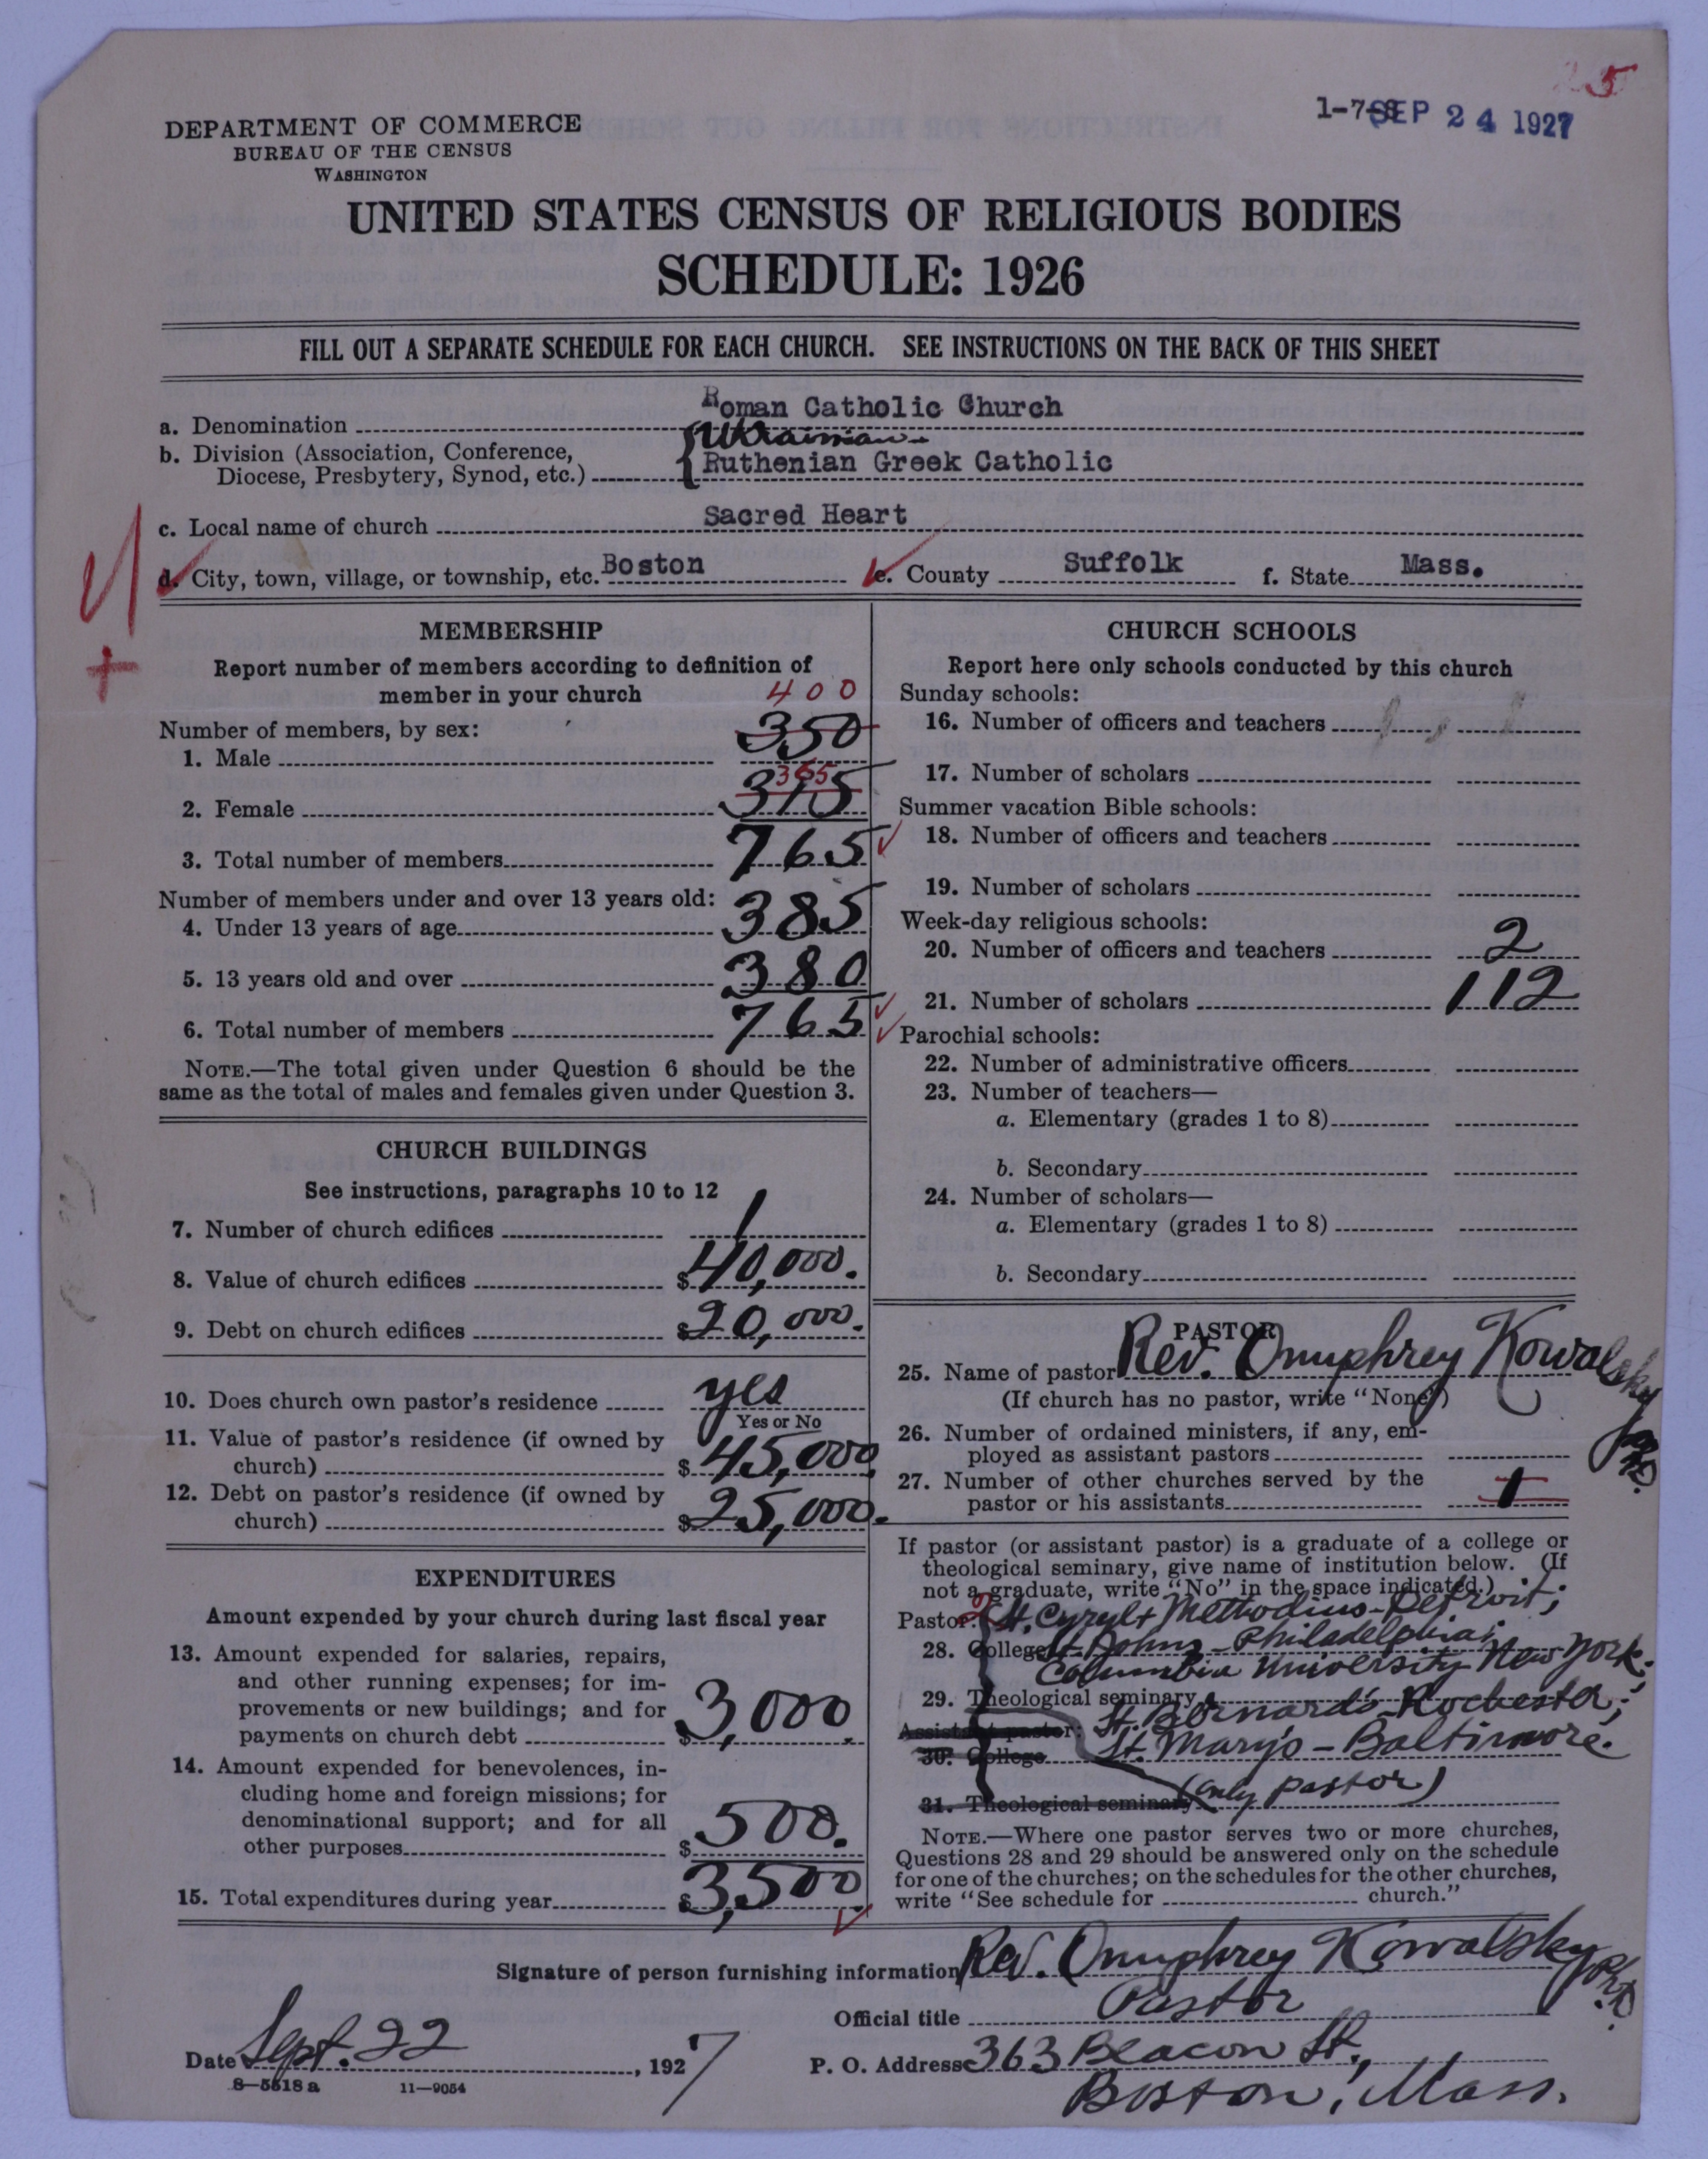 5
1-7-8 SEP 24 1927
DEPARTMENT OF COMMERCE
BUREAU OF THE CENSUS
WASHINGTON
UNITED STATES CENSUS OF RELIGIOUS BODIES
SCHEDULE: 1926
FILL OUT A SEPARATE SCHEDULE FOR EACH CHURCH. SEE INSTRUCTIONS ON THE BACK OF THIS SHEET
a. Denomination Roman Catholic Church
Ukrainian
b. Division (Association, Conference,
Diocese, Presbytery, Synod, etc.) Ruthenian Greek Catholic
c. Local name of church Sacred Heart
d. City, town, village, or township, etc. Boston e. County Suffolk f. State Mass.
MEMBERSHIP
Report number of members according to definition of
member in your church
400
Number of members, by sex: 350
1. Male
365
2. Female 315
3. Total number of members 765
Number of members under and over 13 years old:
4. Under 13 years of age 385
5. 13 years old and over 380
6. Total number of members 765
NOTE.—The total given under Question 6 should be the
same as the total of males and females given under Question 3.
CHURCH BUILDINGS
See instructions, paragraphs 10 to 12
7. Number of church edifices 1
8. Value of church edifices $40,000.
9. Debt on church edifices $20,000.
10. Does church own pastor's residence yes
Yes or No
11. Value of pastor's residence (if owned by
church) $45,000.
12. Debt on pastor's residence (if owned by
church) $25,000.
EXPENDITURES
Amount expended by your church during last fiscal year
13. Amount expended for salaries, repairs,
and other running expenses; for im-
provements or new buildings; and for
payments on church debt $3,000.
14. Amount expended for benevolences, in-
cluding home and foreign missions; for
denominational support; and for all
other purposes $500.
15. Total expenditures during year $3,500.
CHURCH SCHOOLS
Report here only schools conducted by this church
Sunday schools:
16. Number of officers and teachers
17. Number of scholars
Summer vacation Bible schools:
18. Number of officers and teachers
19. Number of scholars
Week-day religious schools:
20. Number of officers and teachers 2
21. Number of scholars 112
Parochial schools:
22. Number of administrative officers
23. Number of teachers—
a. Elementary (grades 1 to 8)
b. Secondary
24. Number of scholars—
a. Elementary (grades 1 to 8)
b. Secondary
PASTOR
25. Name of pastor Rev. Omuphrey Kowalsky PhD.
(If church has no pastor, write "None")
26. Number of ordained ministers, if any, em-
ployed as assistant pastors
27. Number of other churches served by the
pastor or his assistants 1
If pastor (or assistant pastor) is a graduate of a college or
theological seminary, give name of institution below. (If
not a graduate, write "No" in the space indicated.)
Pastor: 2 St. Cyryl & Methodius - Detroit;
28. College St. Johns - Philadelphia;
Columbia University New York;
29. Theological seminary St. Bernard's - Rochester;
Assistant pastor: St. Mary's - Baltimore.
30. College
(only pastor)
31. Theological seminary
NOTE.—Where one pastor serves two or more churches,
Questions 28 and 29 should be answered only on the schedule
for one of the churches; on the schedules for the other churches,
write "See schedule for church."
Signature of person furnishing information Rev. Omuphrey Kowalsky PhD.
Official title Pastor
Date Sept. 22, 1927 P. O. Address 363 Beacon St.,
8—5518 a 11—9054
Boston, Mass.